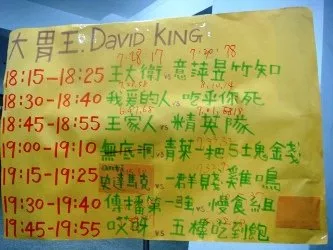 大胃王:DAVID KING
18:15—18:25 王大衛 vs 意萍昱竹知
18:30—18:40 我愛的人 vs 吃乎你死
18:45—18:55 王家人 vs 精英隊
19:00—19:10 無底洞 vs 青菜一把5土鬼金荖
19:15—19:25 史達馬克 vs 一群賤雞鳴
19:30—19:40 傅播第一哇 vs 慢食組
19:45—19:55 哎呀 vs 五樓吃到飽